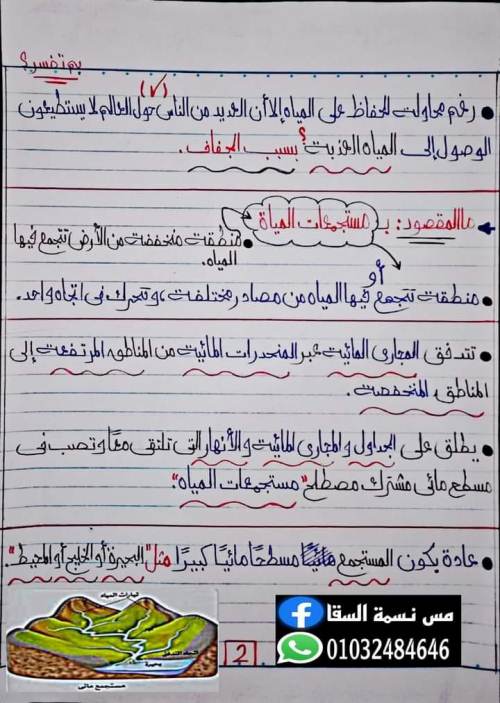 بم تفسر؟
(٧)
رغم محاولات الحفاظ على المياه إلا أن العديد من الناس حول العالم لا يستطيعون
الوصول إلى المياه العذبة؟ بسبب الجفاف.
ما المقصود: بـ مستجمعات المياة
منطقة منخفضة من الأرض تتجمع فيها
المياه.
أو
منطقة تتجمع فيها المياه من مصادر مختلفة، وتتحرك فى اتجاه واحد.
تتدفق المجارى المائية عبر المنحدرات المائية من المناطق المرتفعة إلى
المناطق المنخفضة.
يطلق على الجداول والمجارى المائية والأنهار التى تلتقى معًا وتصب فى
مسطح مائى مشترك مصطلح "مستجمعات المياه".
عادة يكون المستجمع مسطحًا مائيًا كبيرًا مثل "البحيرة أو الخليج أو المحيط".
تيارات المياه
بحيرة
مستجمع مائى
2
مس نسمة السقا
01032484646